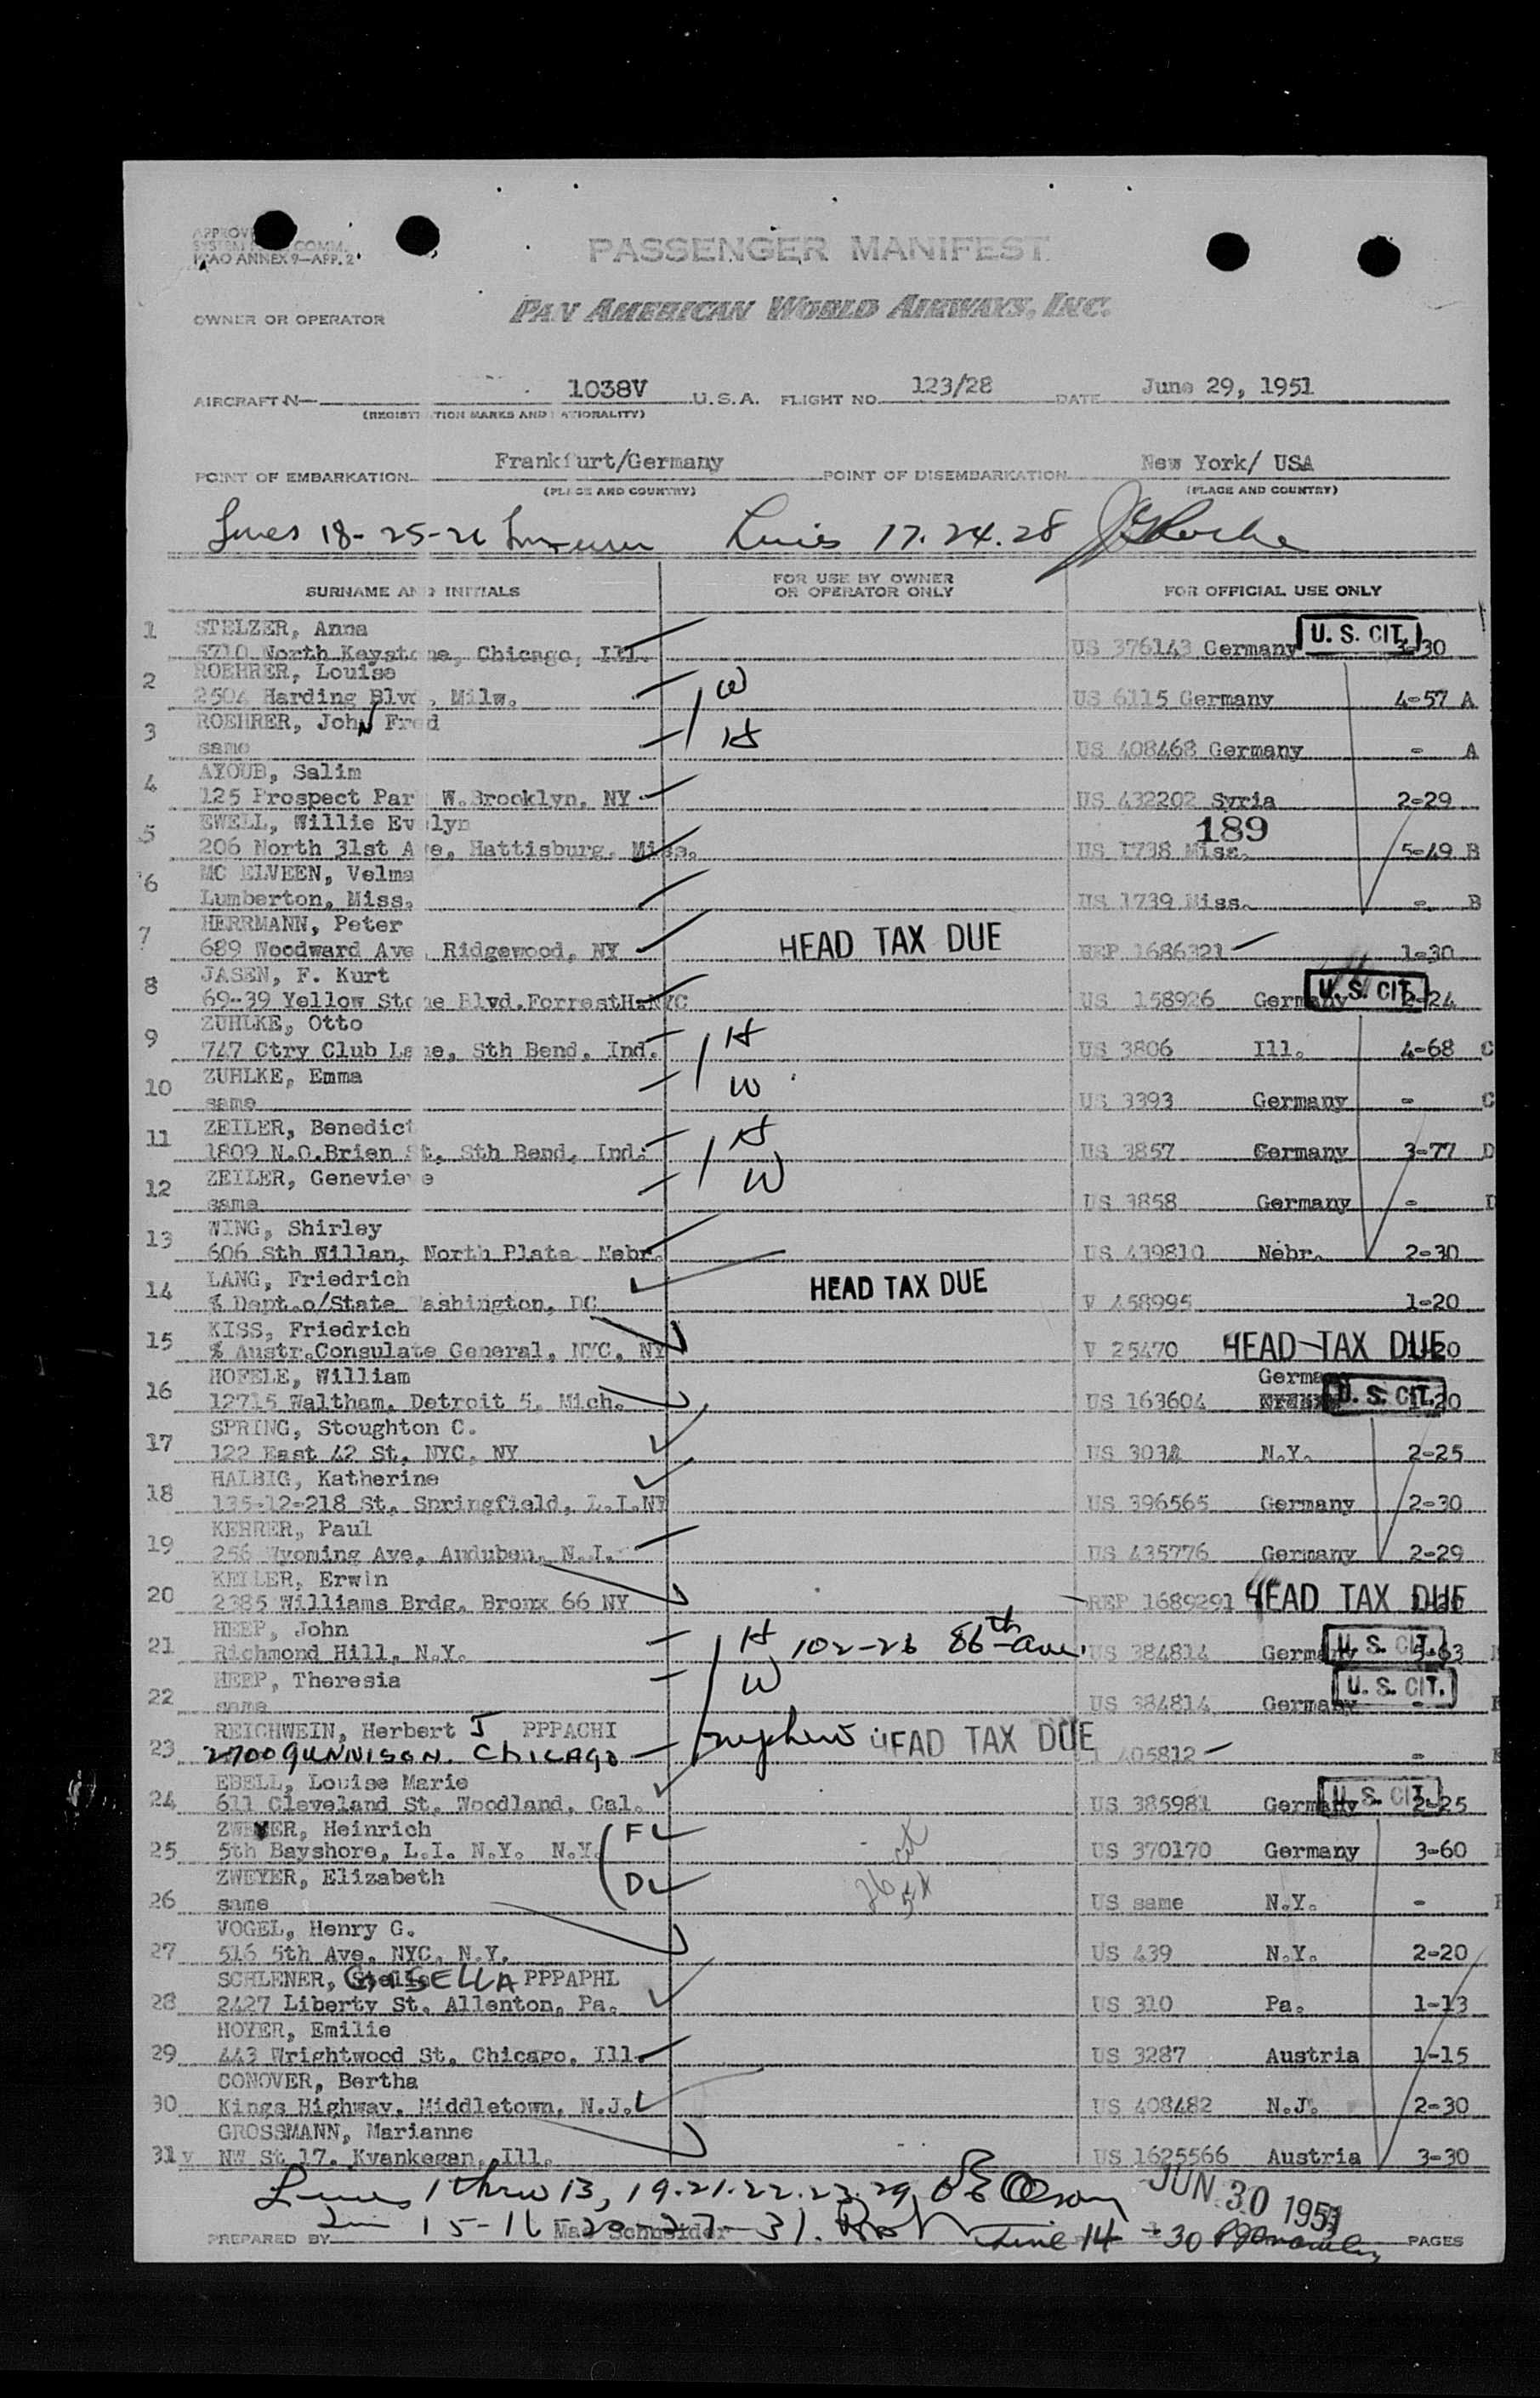 PASSENGER MANIFEST
ICAO ANNEX 9—APP. 2
OWNER OR OPERATOR PAN AMERICAN WORLD AIRWAYS, INC.
AIRCRAFT N— 1038V U.S.A. FLIGHT NO. 123/28 DATE June 29, 1951
(REGISTRATION MARKS AND NATIONALITY)
POINT OF EMBARKATION Frankfurt/Germany POINT OF DISEMBARKATION New York/ USA
(PLACE AND COUNTRY) (PLACE AND COUNTRY)
Lines 18-25-26 Lines 17.24.28
SURNAME AND INITIALS FOR USE BY OWNER OR OPERATOR ONLY FOR OFFICIAL USE ONLY
1 STELZER, Anna
5710 North Keystone, Chicago, Ill. US 376143 Germany U.S. CIT. 3-30
2 ROEHRER, Louise
2504 Harding Blvd, Milw. W US 6115 Germany 4-57 A
3 ROEHRER, John Fred
same H US 408468 Germany - A
4 AYOUB, Salim
125 Prospect Par W.Brooklyn, NY US 432202 Syria 2-29
5 EWELL, Willie Evelyn 189
206 North 31st Ave, Hattisburg, Miss. US 1738 Miss. 5-49 B
6 MC ELVEEN, Velma
Lumberton, Miss. US 1739 Miss. - B
7 HERRMANN, Peter
689 Woodward Ave Ridgewood, NY HEAD TAX DUE REP 1686321 1-30
8 JASEN, F. Kurt
69-39 Yellow Stone Blvd.ForrestH.NYC US 158926 Germany U.S. CIT. 2-24
9 ZUHLKE, Otto
747 Ctry Club Lane, Sth Bend, Ind. H US 3806 Ill. 4-68 C
10 ZUHLKE, Emma
same W US 3393 Germany - C
11 ZEILER, Benedict
1809 N.O.Brien St, Sth Bend, Ind. H US 3857 Germany 3-77 D
12 ZEILER, Genevieve
same W US 3858 Germany - D
13 WING, Shirley
606 Sth Willan, North Plate Nebr. US 439810 Nebr. 2-30
14 LANG, Friedrich
% Dept.o/State Washington, DC HEAD TAX DUE V 458995 1-20
15 KISS, Friedrich
% Austr.Consulate General, NYC, NY V 25470 HEAD TAX DUE 1-20
16 HOFELE, William Germany
12715 Waltham, Detroit 5, Mich. US 163604 U.S. CIT. 1-20
17 SPRING, Stoughton C.
122 East 42 St, NYC, NY US 3034 N.Y. 2-25
18 HALBIG, Katherine
135-12-218 St, Springfield, L.I.NY US 396565 Germany 2-30
19 KEHRER, Paul
256 Wyoming Ave, Auduben, N.J. US 435776 Germany 2-29
20 KELLER, Erwin
2385 Williams Brdg, Bronx 66 NY REP 1689291 HEAD TAX DUE
21 HEEP, John
Richmond Hill, N.Y. H 102-26 86th Ave. US 384814 Germany U.S. CIT. 5-63
22 HEEP, Theresia
same W US 384814 Germany U.S. CIT. -
23 REICHWEIN, Herbert J PPPACHI
2700 GUNNISON. CHICAGO nephew HEAD TAX DUE 405812 -
24 EBELL, Louise Marie
611 Cleveland St, Woodland, Cal. US 385981 Germany U.S. CIT. 2-25
25 ZWEYER, Heinrich F
5th Bayshore, L.I. N.Y. N.Y. US 370170 Germany 3-60
26 ZWEYER, Elizabeth D
same US same N.Y. -
27 VOGEL, Henry G.
516 5th Ave, NYC, N.Y. US 439 N.Y. 2-20
28 SCHLENER, GISELLA PPPAPHL
2427 Liberty St, Allenton, Pa. US 310 Pa. 1-13
29 HOYER, Emilie
443 Wrightwood St, Chicago, Ill. US 3287 Austria 1-15
30 CONOVER, Bertha
Kings Highway, Middletown, N.J. US 408482 N.J. 2-30
31 GROSSMANN, Marianne
NW St 17, Kvankegan, Ill. US 1625566 Austria 3-30
Lines 1 thru 13, 19.21.22.23.29 JUN 30 1951
15-16 - 20-27-31. Line 14 - 30
PREPARED BY Max Schneider PAGES